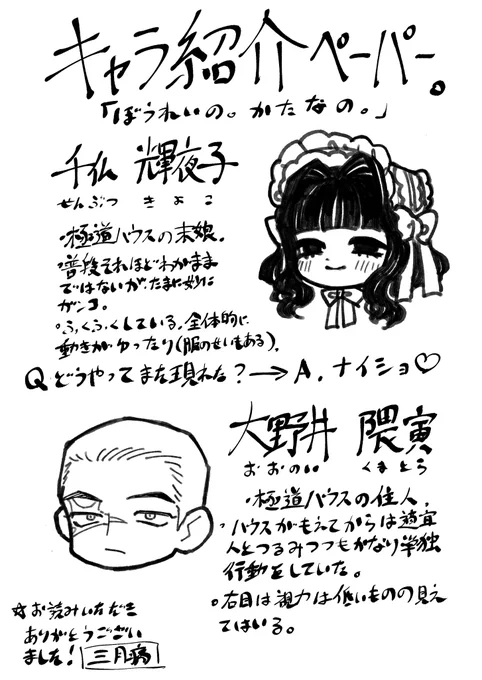 キャラ紹介ペーパー。
「ぼうれいの。かたなの。」
千仏 輝夜子
せんぶつ きよこ
・極道ハウスの末娘。
・普段それほどわがまま
ではないが、たまに妙に
ガンコ。
・ふくふくしている。全体的に
動きがゆったり(服のせいもある)。
Q どうやってまた現れた?→A.ナイショ♡
大野井 隈寅
おおのい くまとら
・極道ハウスの住人。
・ハウスがもえてからは適宜
人とつるみつつもかなり単独
行動をしていた。
・右目は視力は低いものの見え
てはいる。
☆お読みいただき
ありがとうござい
ました!三月病